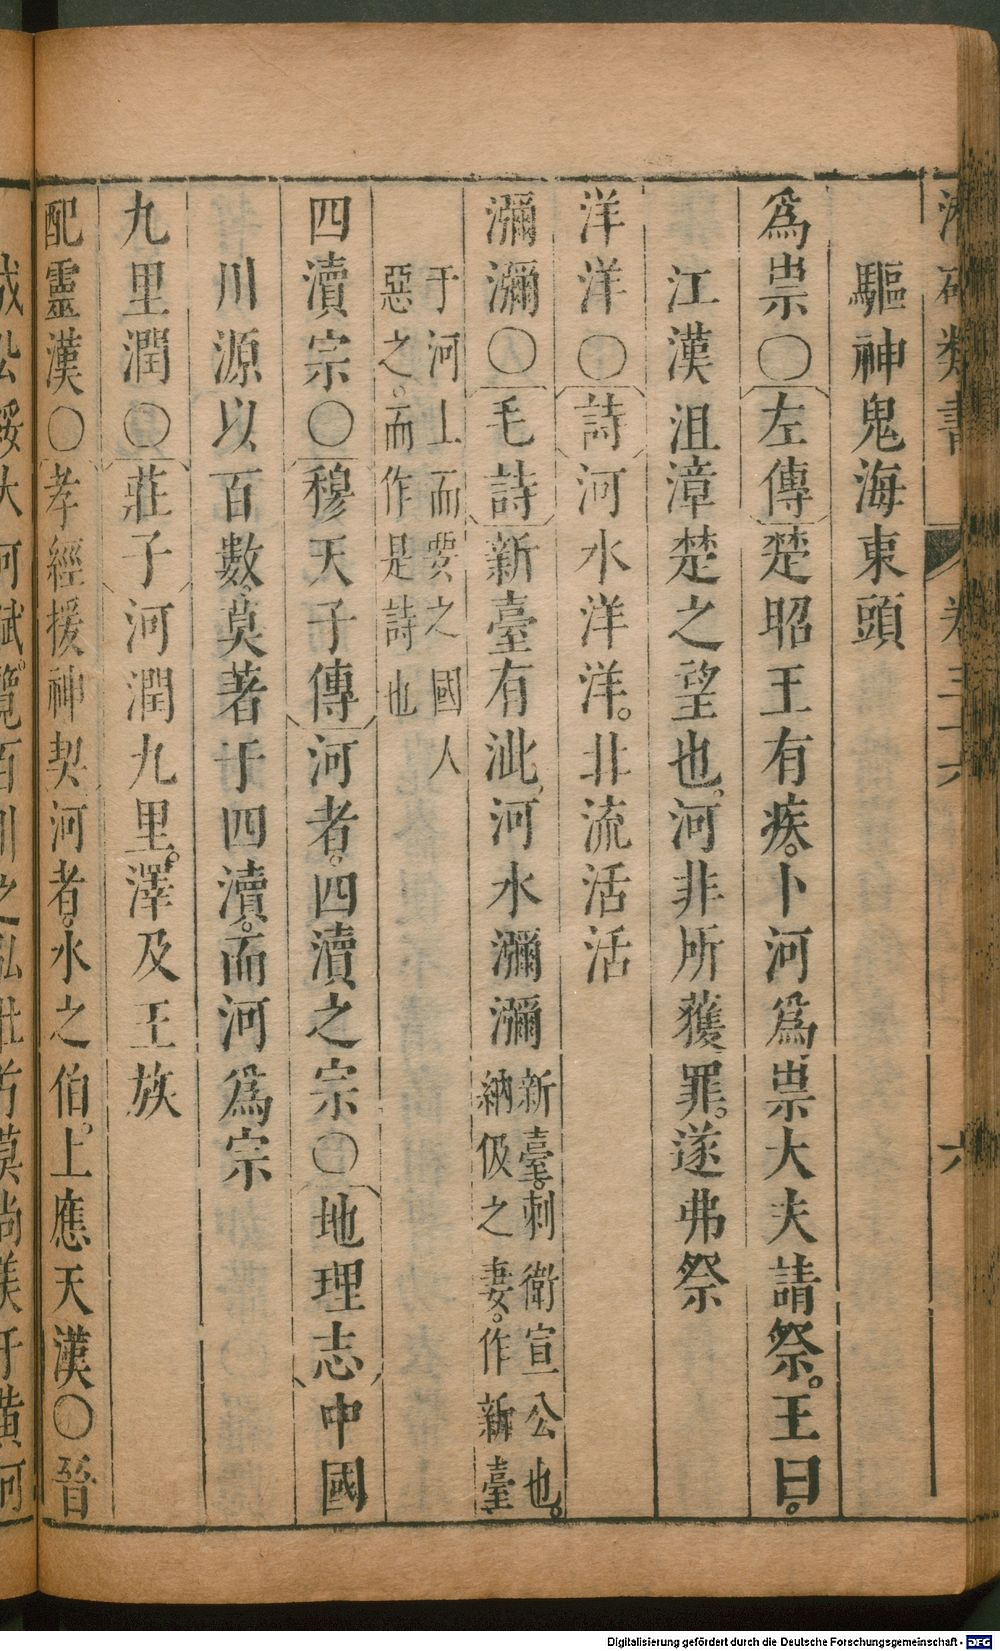 類書
卷三十六
六
驅神鬼海東頭
為祟○左傳楚昭王有疾。卜河為祟大夫請祭。王曰。
江漢沮漳楚之望也。河非所獲罪。遂弗祭
洋洋○詩河水洋洋。北流活活
瀰瀰○毛詩新臺有泚。河水瀰瀰新臺。刺衛宣公也。納伋之妻。作新臺
于河上而要之國人惡之。而作是詩也
四瀆宗○穆天子傳河者。四瀆之宗○地理志中國
川源以百數。莫著于四瀆。而河為宗
九里潤○莊子河潤九里。澤及王族
配靈漢○孝經援神契河者。水之伯。上應天漢○晉
成公綏大河賦。覽百川之弘壯兮莫尚美于黃河
Digitalisierung gefördert durch die Deutsche Forschungsgemeinschaft - DFG